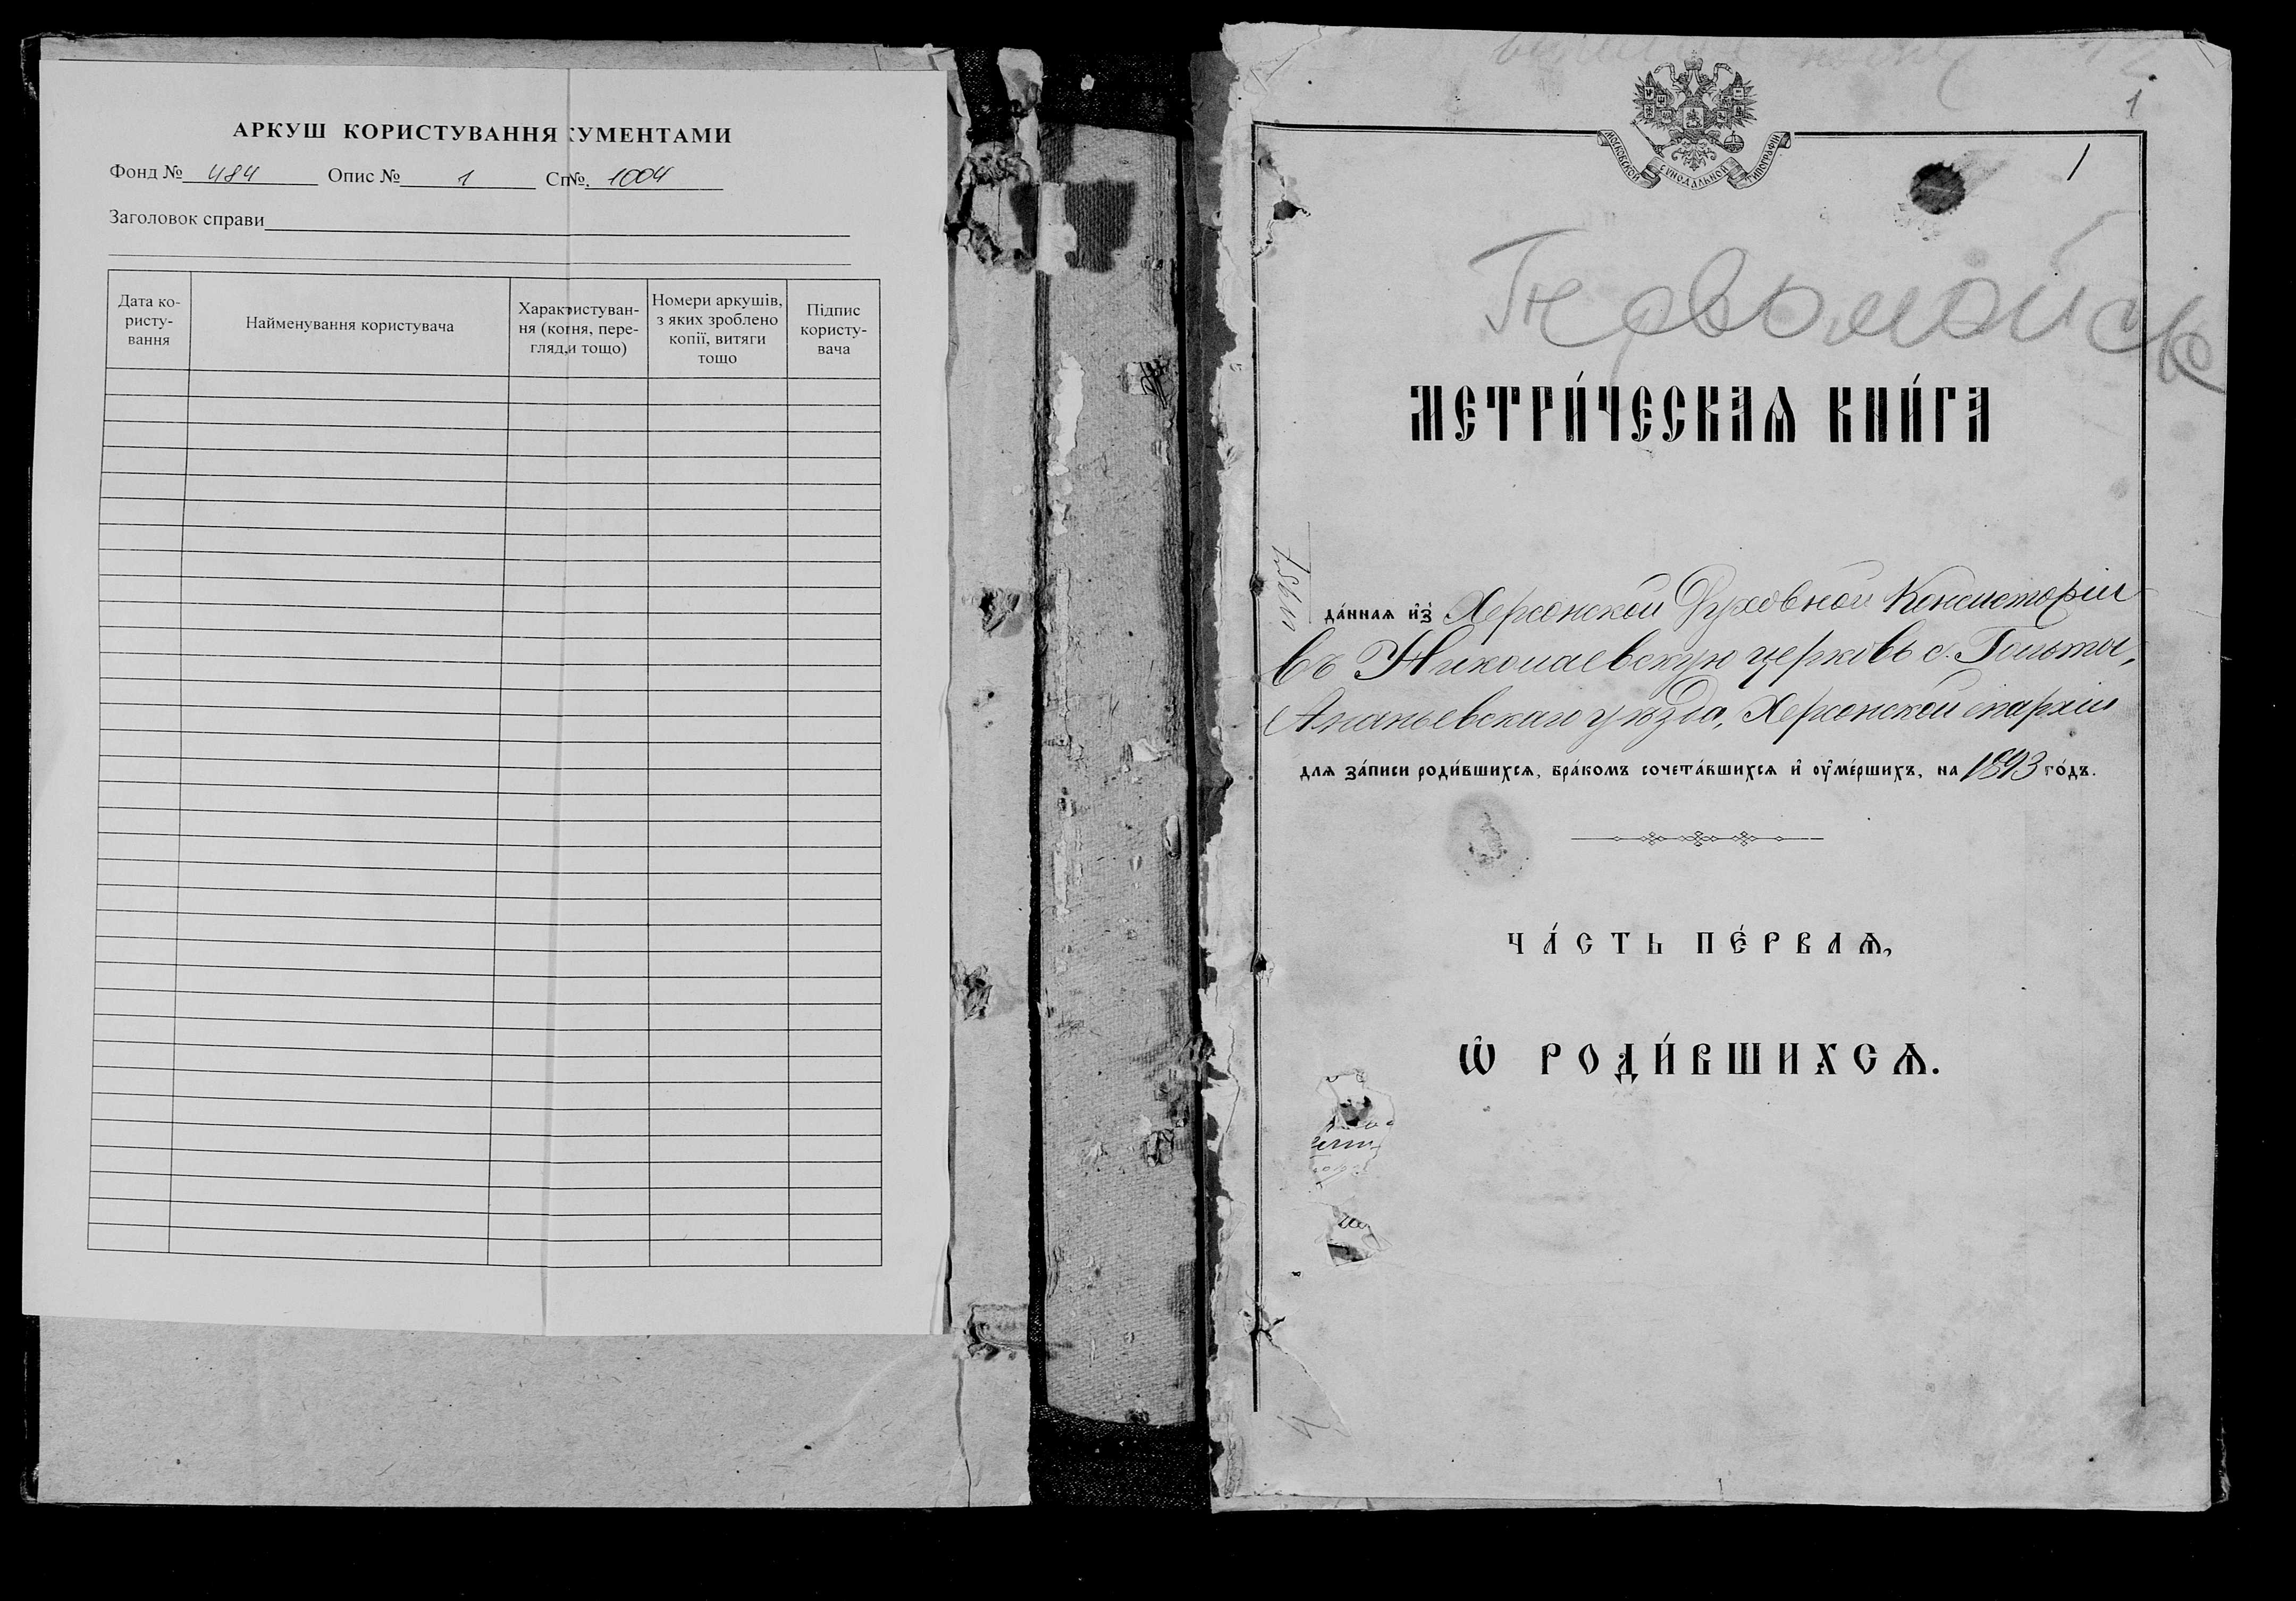 АРКУШ КОРИСТУВАННЯ КУМЕНТАМИ
Фонд № 484 Опис № 1 Сп№. 1004
Заголовок справи
Дата ко-
ристу-
вання
Найменування користувача
Характистуван-
ня (копія, пере-
гляд,и тощо)
Номери аркушів,
з яких зроблено
копії, витяги
тощо
Підпис
користу-
вача
1
1
МОСКОВСКОЙ СѴНОДАЛЬНОЙ ТИПОГРАФІИ
Первомайск
МЕТРИ́ЧЕСКАѦ КНИ́ГА
да́ннаѧ и҆з̾ Херсонской Духовной Консисторіи
въ Николаевскую церковь с. Гольты,
Ананьевскаго уѣзда, Херсонской епархіи
длѧ за́писи роди́вшихсѧ, бра́комъ сочета́вшихсѧ и҆ оу҆ме́ршихъ, на 1893 го́дъ.
ЧА́СТЬ ПЕ́РВАѦ,
Ѡ҆ РОДИ́ВШИХСѦ.